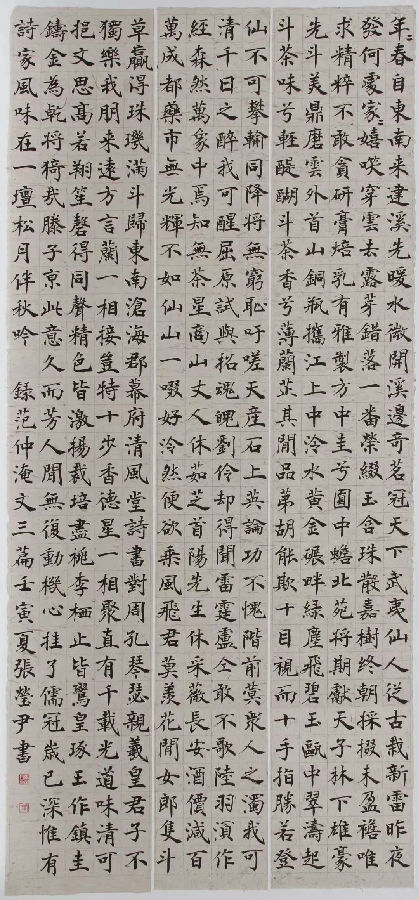 年〻春自東南来建溪先暖水微開溪邊奇茗冠天下武夷仙人從古栽新雷昨夜
發何處家〻嬉咲穿雲去露芽錯落一番榮綴玉含珠散嘉樹終朝採掇未盈襜唯
求精粹不敢貪研膏焙乳有雅製方中圭兮圓中蟾北苑将期獻天子林下雄豪
先斗美鼎磨雲外首山銅瓶攜江上中泠水黄金碾畔緑塵飛碧玉甌中翠濤起
斗茶味兮輕醍醐斗茶香兮薄蘭芷其間品苐胡能欺十目視而十手指勝若登
仙不可攀輸同降将無窮恥吁嗟天産石上英論功不愧階前蓂衆人之濁我可
清千日之醉我可醒屈原試與招魂魄劉伶却得聞雷霆盧仝敢不歌陸羽須作
經森然萬象中焉知無茶星商山丈人休茹芝首陽先生休采薇長安酒價減百
萬成都藥市無光輝不如仙山一啜好泠然便欲乗風飛君莫羨花間女郎隻斗
草贏得珠璣滿斗歸東南滄海郡幕府清風堂詩書對周孔琴瑟親羲皇君子不
獨樂我朋来遠方言蘭一相接豈特十少香德星一相聚直有千載光道味清可
挹文思高若翔笙磬得同聲精色皆激揚栽培盡桃李栖止皆鸞皇琢玉作鎮圭
鑄金為乾将猗哉滕子京此意久而芳人間無復動機心挂了儒冠歲已深惟有
詩家風味在一壇松月伴秋吟 録范仲淹文三篇壬寅夏張瑩尹書